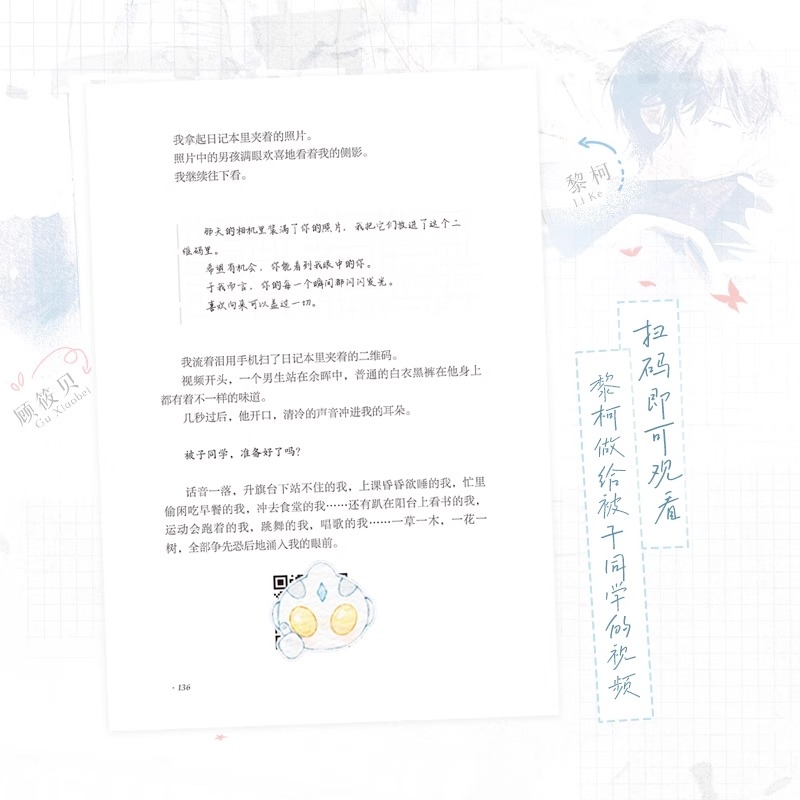 我拿起日记本里夹着的照片。
照片中的男孩满眼欢喜地看着我的侧影。
我继续往下看。
那天的相机里装满了你的照片，我把它们放进了这个二
维码里。
希望有机会，你能看到我眼中的你。
于我而言，你的每一个瞬间都闪闪发光。
喜欢向来可以盖过一切。
我流着泪用手机扫了日记本里夹着的二维码。
视频开头，一个男生站在余晖中，普通的白衣黑裤在他身上
都有着不一样的味道。
几秒过后，他开口，清冷的声音冲进我的耳朵。
被子同学，准备好了吗？
话音一落，升旗台下站不住的我，上课昏昏欲睡的我，忙里
偷闲吃早餐的我，冲去食堂的我……还有趴在阳台上看书的我，
运动会跑着的我，跳舞的我，唱歌的我……一草一木，一花一
树，全部争先恐后地涌入我的眼前。
· 136
顾筱贝
Gu Xiaobei
黎柯
Li Ke
扫码即可观看
黎柯做给被子同学的视频